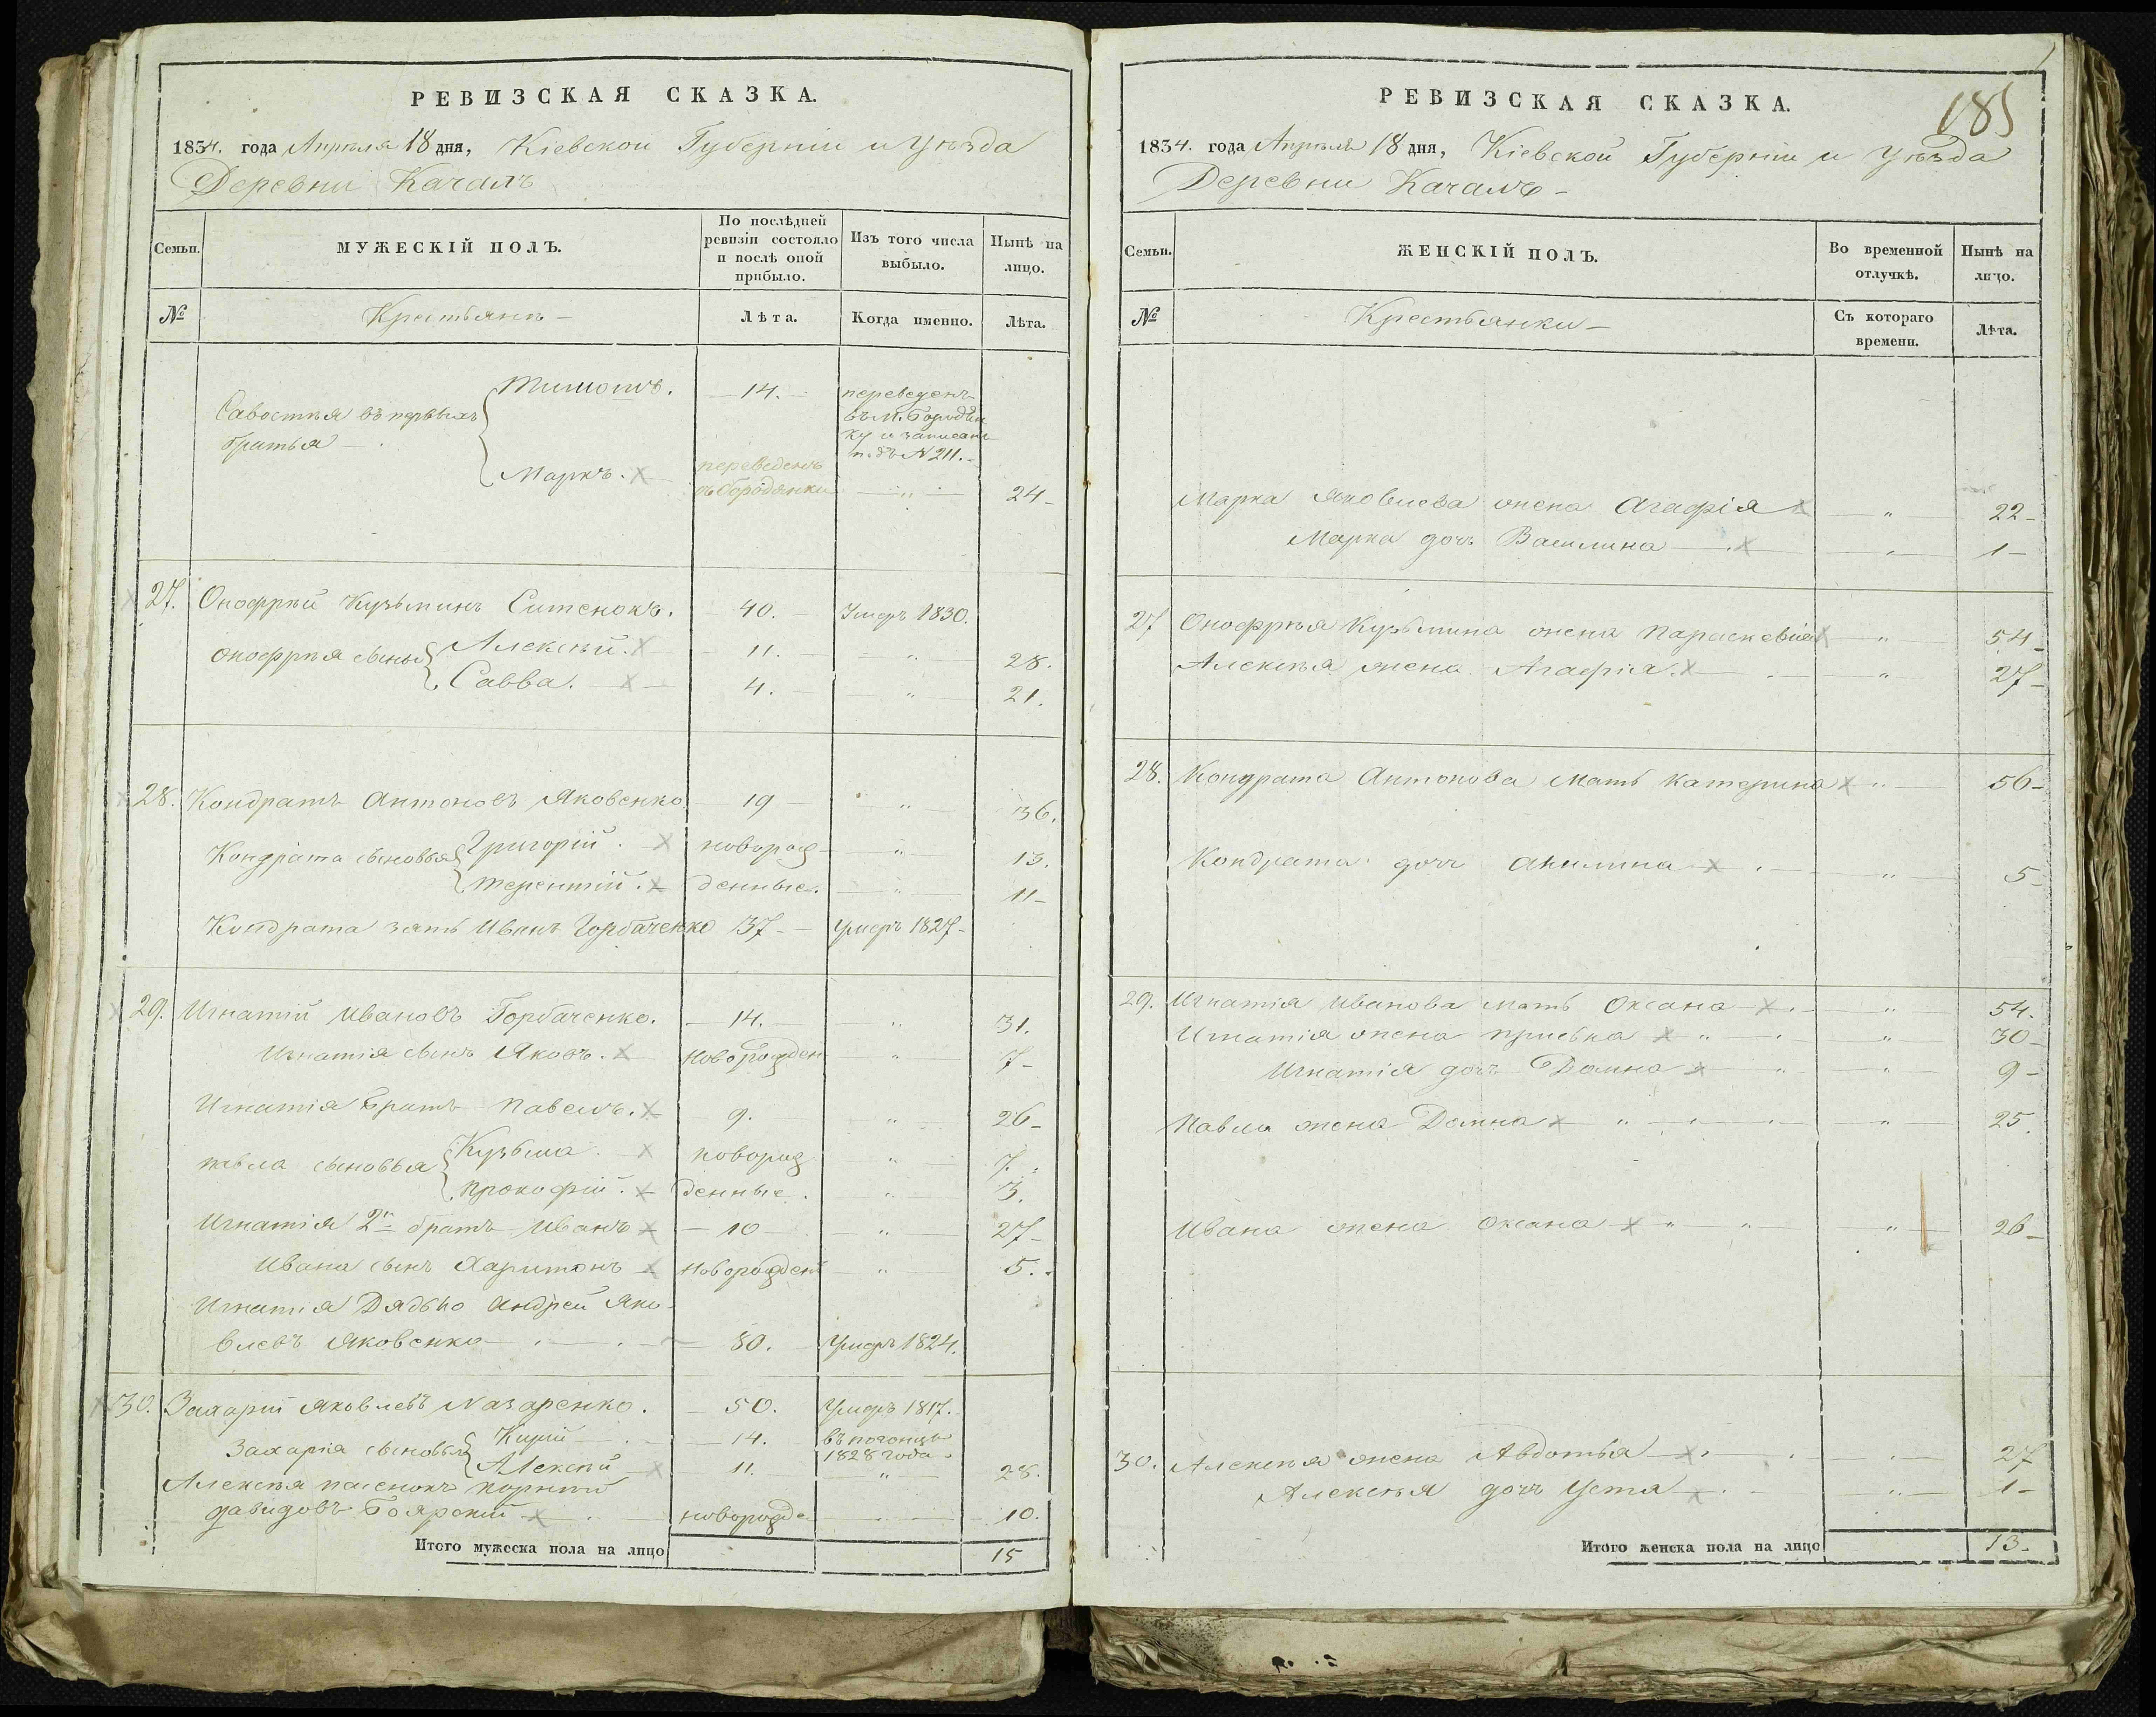 РЕВИЗСКАЯ СКАЗКА.
1834. года Апреля 18 дня, Кіевской Губерніи и Уѣзда
Деревни Качалъ
Семьи.
МУЖЕСКІЙ ПОЛЪ.
По послѣдней ревизіи состояло и послѣ оной прибыло.
Изъ того числа выбыло.
Нынѣ на лицо.
№
Крестьянъ
Лѣта.
Когда именно.
Лѣта.
Савостья въ первыхъ братья
Тимошъ. 14. переведенъ
въ М. Бородян
ку и записанъ
подъ N 211.
Маркъ. переведенъ
съ Бородянки " 24
27. Онофрѣй Кузьминъ Ситенокъ. 40. Умеръ 1830.
Онофрѣя сыны Алексѣй. 11. " 28.
Савва. 4. " 21.
28. Кондратъ Антоновъ Яковенко 19 " 36.
Кондрата сыновья Григорій. новорож " 13.
Терентій. денные. " 11
Кондрата зять Иванъ Горбаченко 37 Умеръ 1827
29. Игнатій Ивановъ Горбаченко. 14. " 31.
Игнатія сынъ Яковъ. Новорожден " 7
Игнатія братъ Павелъ. 9. " 26
Павла сыновья Кузьма. новорож " 7.
Прокофій. денные. " 3.
Игнатія 2й братъ Иванъ 10 " 27
Ивана сынъ Харитонъ Новорожден " 5.
Игнатія Дядько Андрей Яко
влевъ Яковенко 50. Умеръ 1824.
30. Захарій Яковлевъ Назаренко. 50. Умеръ 1817.
Захарія сыновья 14. въ
1828 года
Алексѣй 11. " 28.
Алексѣя пасенокъ Корнѣй
Давидовъ Боярскій новорожде 10.
Итого мужеска пола на лицо 15
185
РЕВИЗСКАЯ СКАЗКА.
1834. года Апрѣля 18 дня, Кіевской Губерніи и Уѣзда
Деревни Качалъ
Семьи.
ЖЕНСКІЙ ПОЛЪ.
Во временной отлучкѣ.
Нынѣ на лицо.
№
Крестьянки
Съ котораго времени.
Лѣта.
Марка Яковлева жена Агафія " 22
Марка дочь Василина " 1
27 Онофрѣя Кузьмина жена Параскевія " 54
Алексѣя жена Агафія. " 27
28. Кондрата Антонова мать Катерина " 56
Кондрата дочь Акилина " 5
29. Игнатія Иванова мать Оксана " 54.
Игнатія жена Приська " 30
Игнатія дочь Домна " 9
Павла жена Домна " 25.
Ивана жена Оксана " 26
30. Алексѣя жена Авдотья " 27
Алексѣя дочь Устя " 1
Итого женска пола на лицо 13.